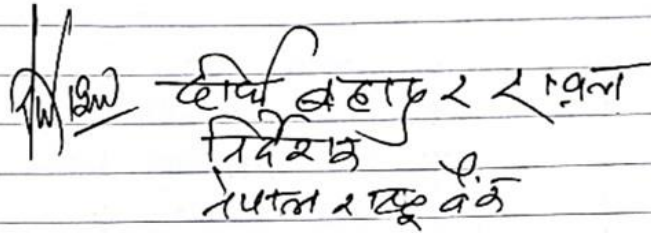 दीर्घ बहादुर रावल
निर्देशक
नेपाल राष्ट्र बैंक